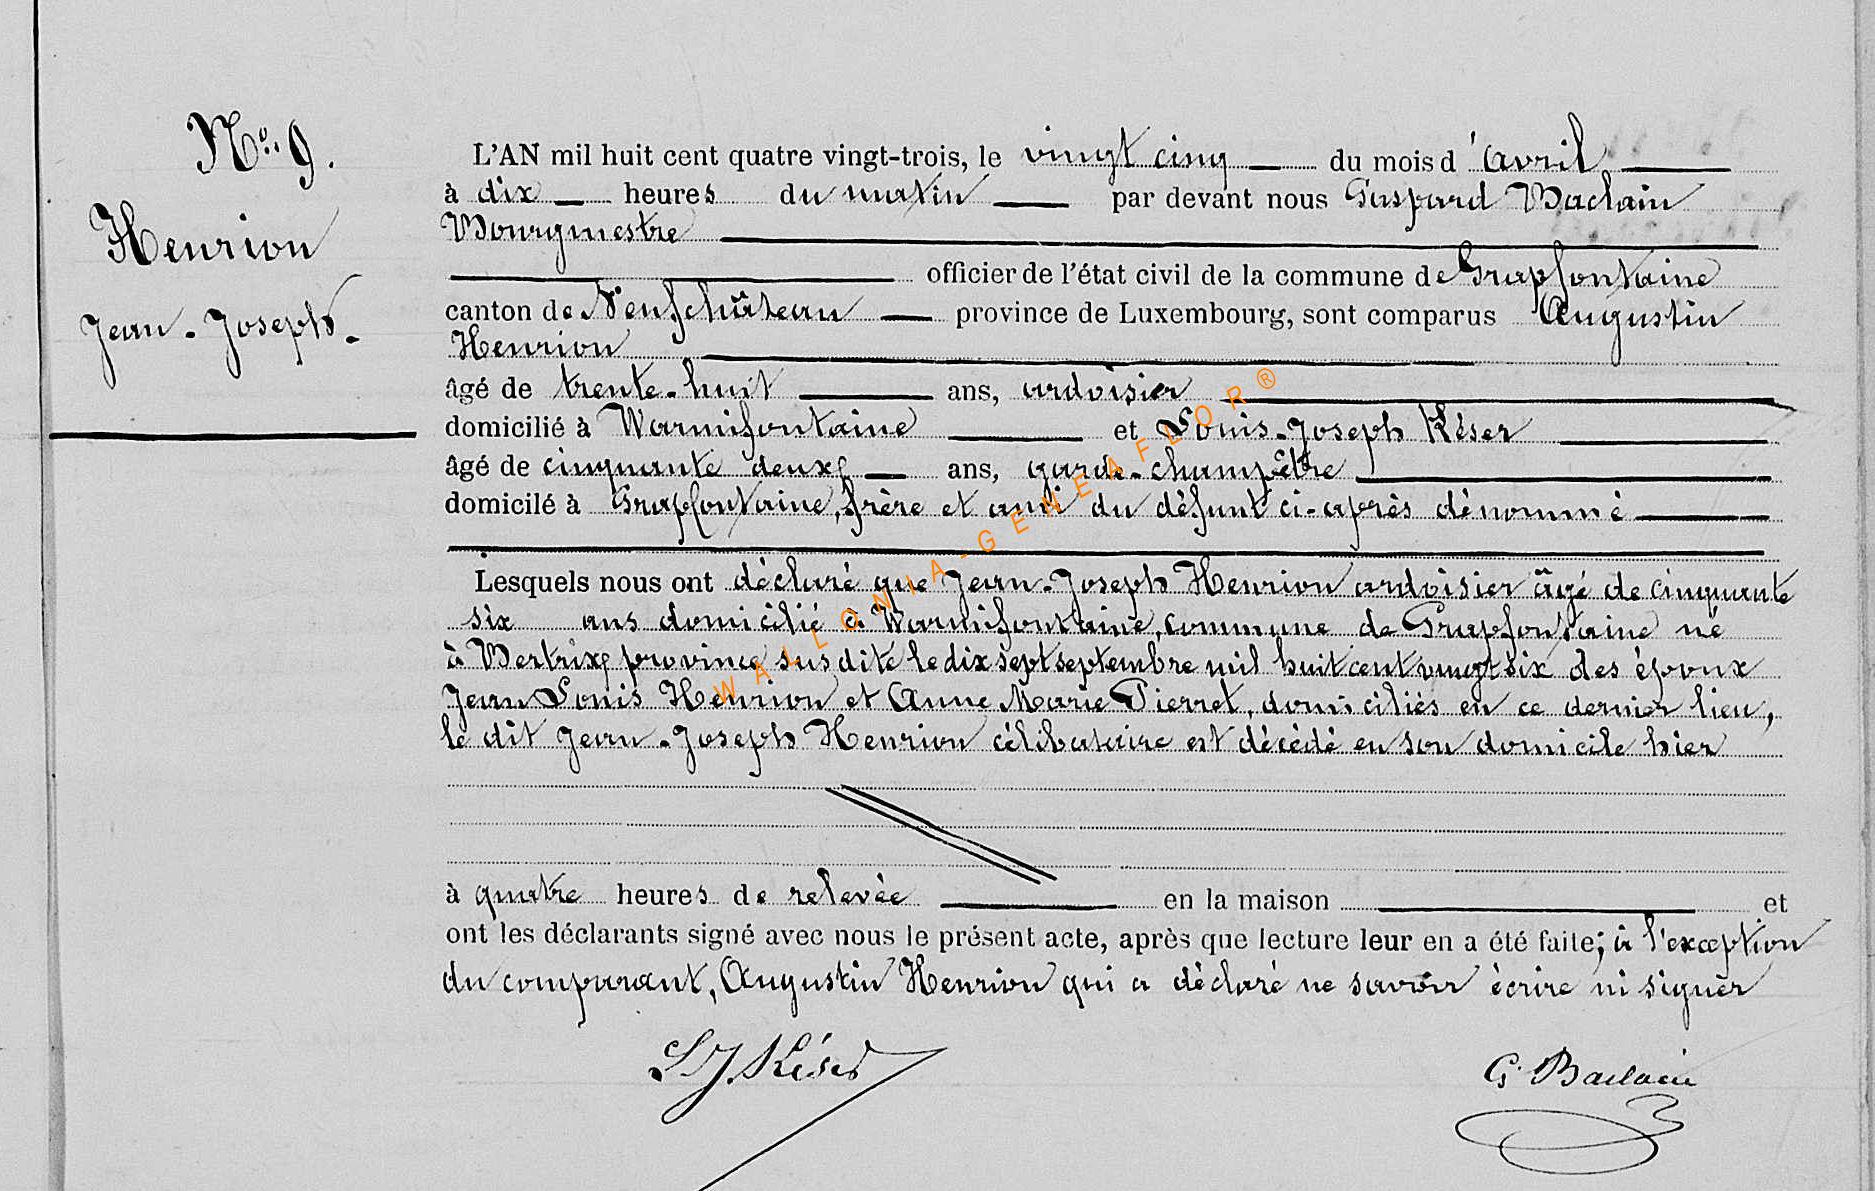 N° 9.
Henrion
Jean-Joseph.
L'AN mil huit cent quatre vingt-trois, le vingt cinq du mois d'avril
à dix heures du matin par devant nous Gaspard Baclain
Bourgmestre
officier de l'état civil de la commune de Grapfontaine
canton de Neufchâteau province de Luxembourg, sont comparus Augustin
Henrion
âgé de trente-huit ans, ardoisier
domicilié à Warmifontaine et Louis-Joseph Késer
âgé de cinquante deux ans, garde-champêtre
domicilé à Grapfontaine, frère et ami du défunt ci-après dénommé
Lesquels nous ont déclaré que Jean-Joseph Henrion ardoisier âgé de cinquante
six ans domicilié à Warmifontaine, commune de Grapfontaine né
à Bertrix province susdite le dix sept septembre mil huit cent vingt six des époux
Jean Louis Henrion et Anne Marie Pierret, domiciliés en ce dernier lieu,
le dit Jean-Joseph Henrion célibataire est décédé en son domicile hier
à quatre heures de relevée en la maison et
ont les déclarants signé avec nous le présent acte, après que lecture leur en a été faite; à l'exception
du comparant, Augustin Henrion qui a déclaré ne savoir écrire ni signer
LJ. Késer
G. Baclain
WALLONIA-GENEAFLOR®